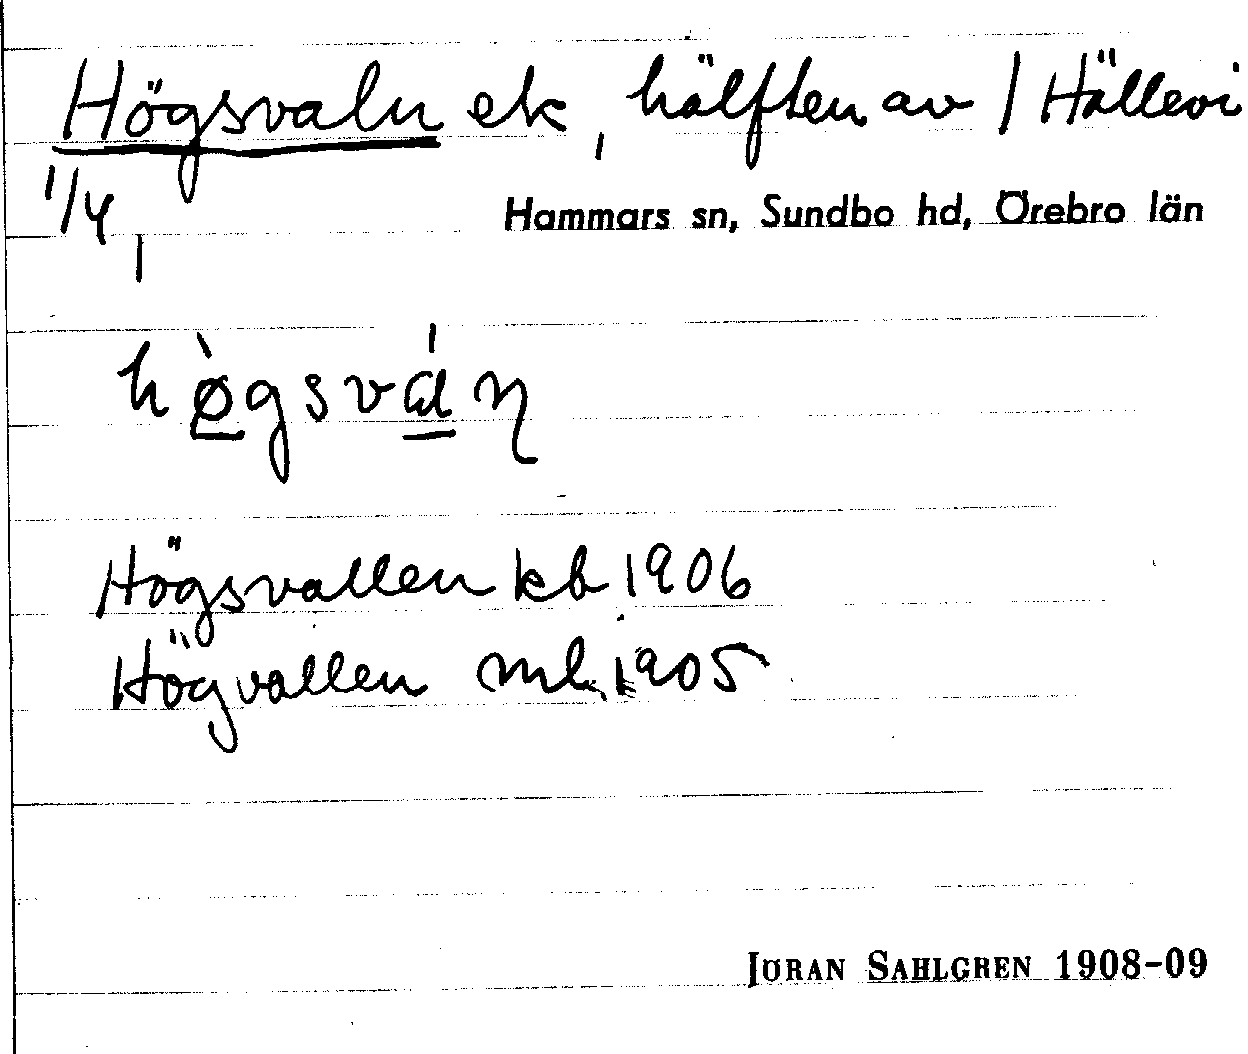 Högsvaln ek, hälften av / Hällevi
1/4,
Hammars sn, Sundbo hd, Örebro län
hø̀gsváɳ
Högsvallen kb 1906
Högvallen ml. 1905
JÖRAN SAHLGREN 1908-09